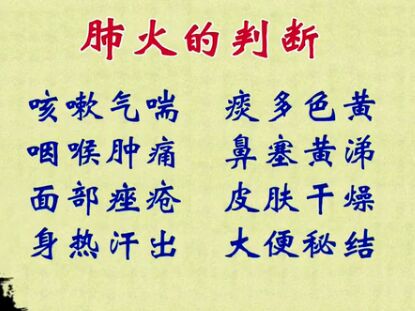 肺火的判断
咳嗽气喘 痰多色黄
咽喉肿痛 鼻塞黄涕
面部痤疮 皮肤干燥
身热汗出 大便秘结